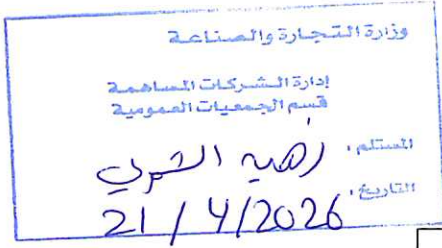 وزارة التجارة والصناعة
إدارة الشركات المساهمة
قسم الجمعيات العمومية
المستلم :
التاريخ : 21/4/2026